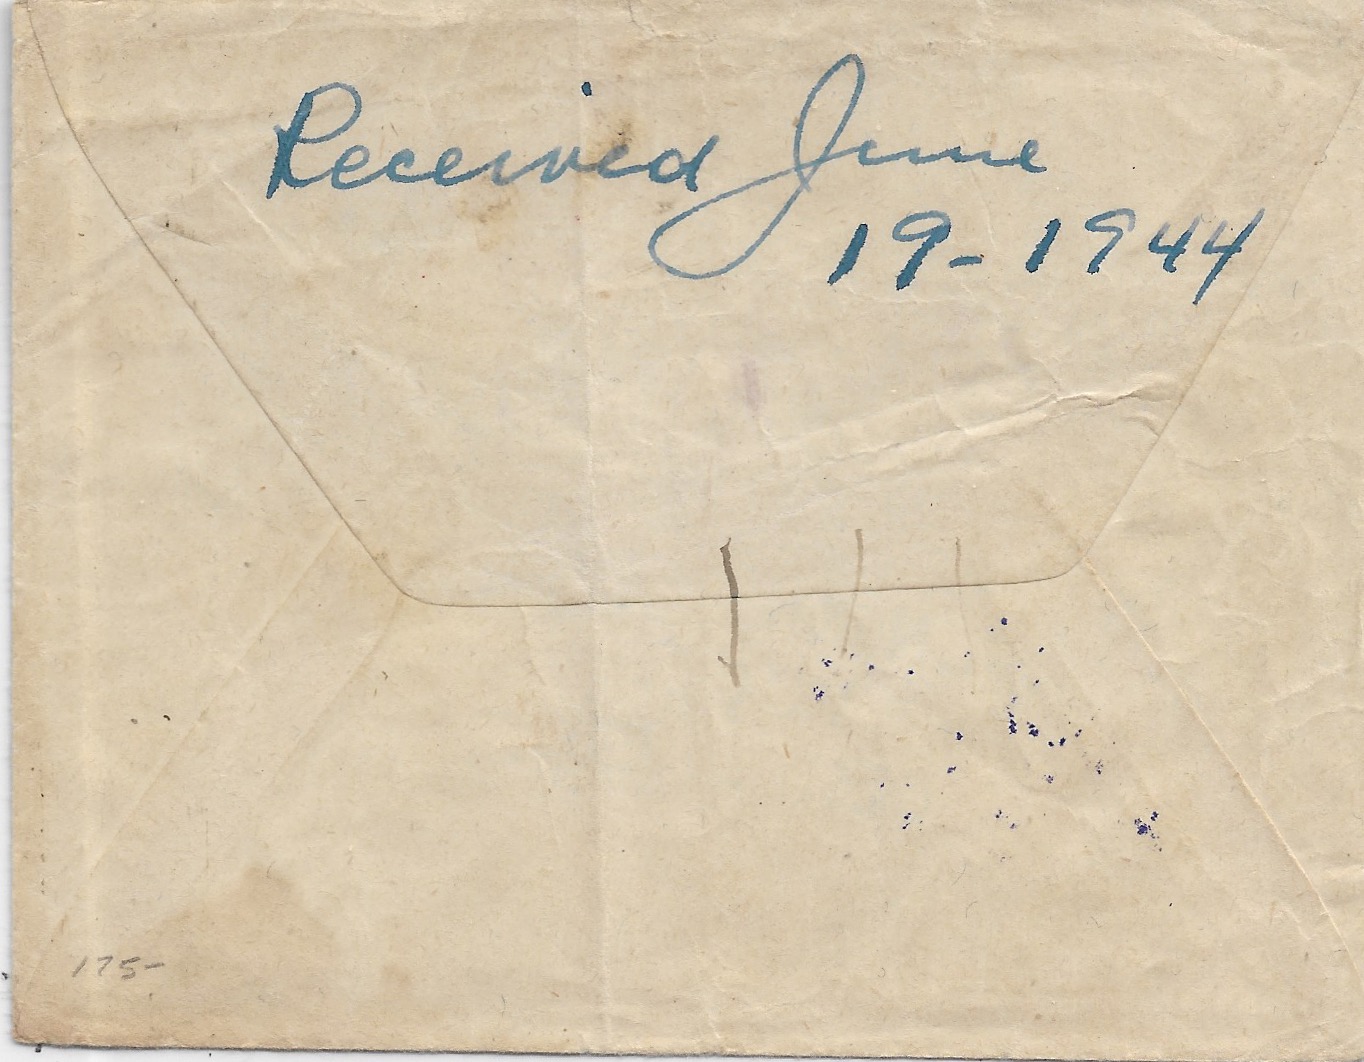 Received June
19-1944
175-